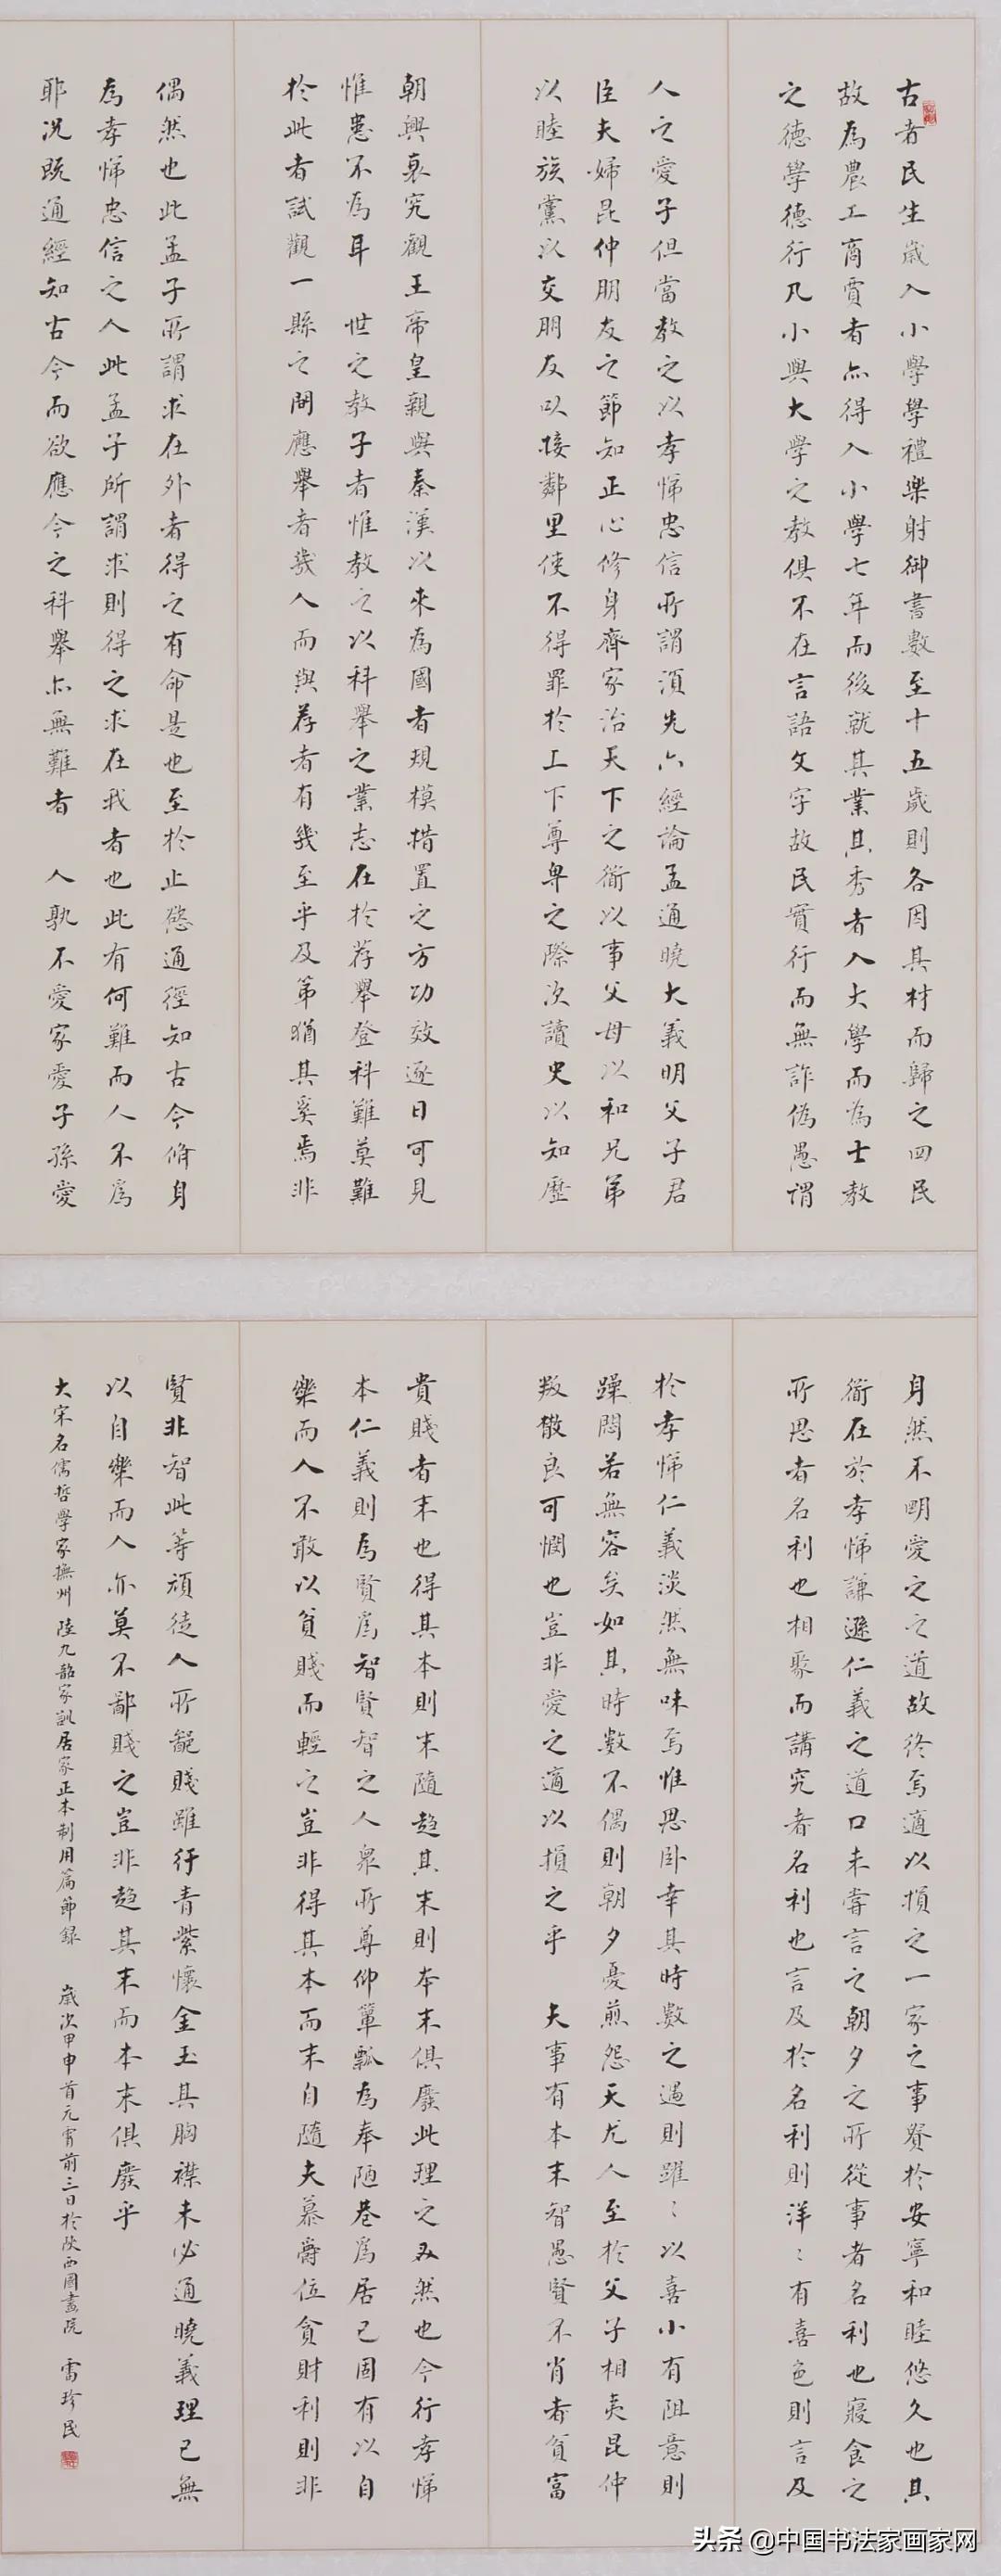 古者民生歲入小學學禮樂射御書數至十五歲則各因其材而歸之四民
故為農工商賈者亦得入小學七年而後就其業其秀者入大學而為士教
之德學德行凡小與大學之教俱不在言語文字故民實行而無詐偽愚謂
人之愛子但當教之以孝悌忠信所謂須先六經論孟通曉大義明父子君
臣夫婦昆仲朋友之節知正心修身齊家治天下之衜以事父母以和兄弟
以睦族黨以交朋友以接鄰里使不得罪於上下尊卑之際次讀史以知歷
朝興衰究觀王帝皇親與秦漢以來為國者規模措置之方功效逐日可見
惟患不為耳 世之教子者惟教之以科舉之業志在於荐舉登科難莫難
於此者試觀一縣之間應舉者幾人而與荐者有幾至乎及第猶其奚焉非
偶然也此孟子所謂求在外者得之有命是也至於止慾通徑知古今脩身
為孝悌忠信之人此孟子所謂求則得之求在我者也此有何難而人不為
耶况既通經知古今而欲應今之科舉亦無難者 人孰不愛家愛子孫愛
身然不明愛之之道故終焉適以損之一家之事貴於安寧和睦悠久也其
衜在於孝悌謙遜仁義之道口未嘗言之朝夕之所從事者名利也寢食之
所思者名利也相聚而講究者名利也言及於名利則洋〻有喜色則言及
於孝悌仁義淡然無味焉惟思卧幸其時數之遇則躍〻以喜小有阻意則
躁悶若無容矣如其時數不偶則朝夕憂煎怨天尤人至於父子相夷昆仲
叛散良可憫也豈非愛之適以損之乎 夫事有本末智愚賢不肖者貧富
貴賤者末也得其本則末隨趋其末則本末俱廢此理之必然也今行孝悌
本仁義則為賢為智賢智之人衆所尊仰簞瓢為奉陋巷為居己固有以自
樂而人不敢以貧賤而輕之豈非得其本而末自隨夫慕爵位貪財利則非
賢非智此等頑徒人所鄙賤雖行青紫懷金玉其胸襟未必通曉義理己無
以自樂而人亦莫不鄙賤之豈非趋其末而本末俱廢乎
大宋名儒哲學家撫州 陸九韶家訓居家正本制用篇節録 歲次甲申首元宵前三日於陝西國畫院 雷珍民
头条 @中国书法家画家网